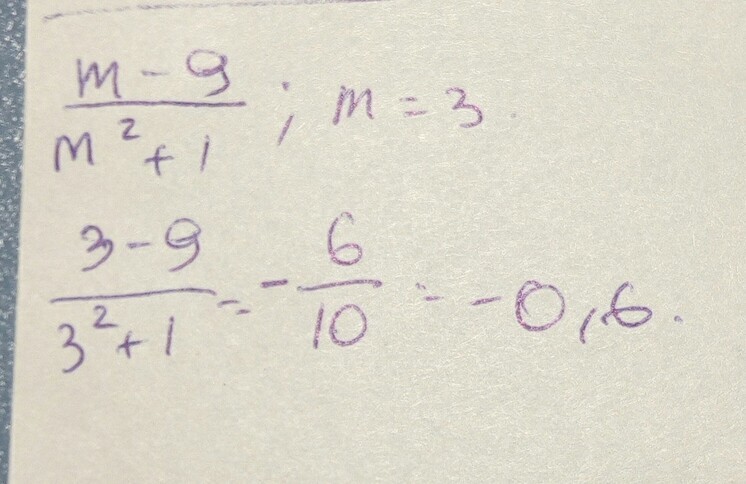 (m - 9)/(m² + 1) ; m = 3
(3 - 9)/(3² + 1) = - 6/10 = -0,6.